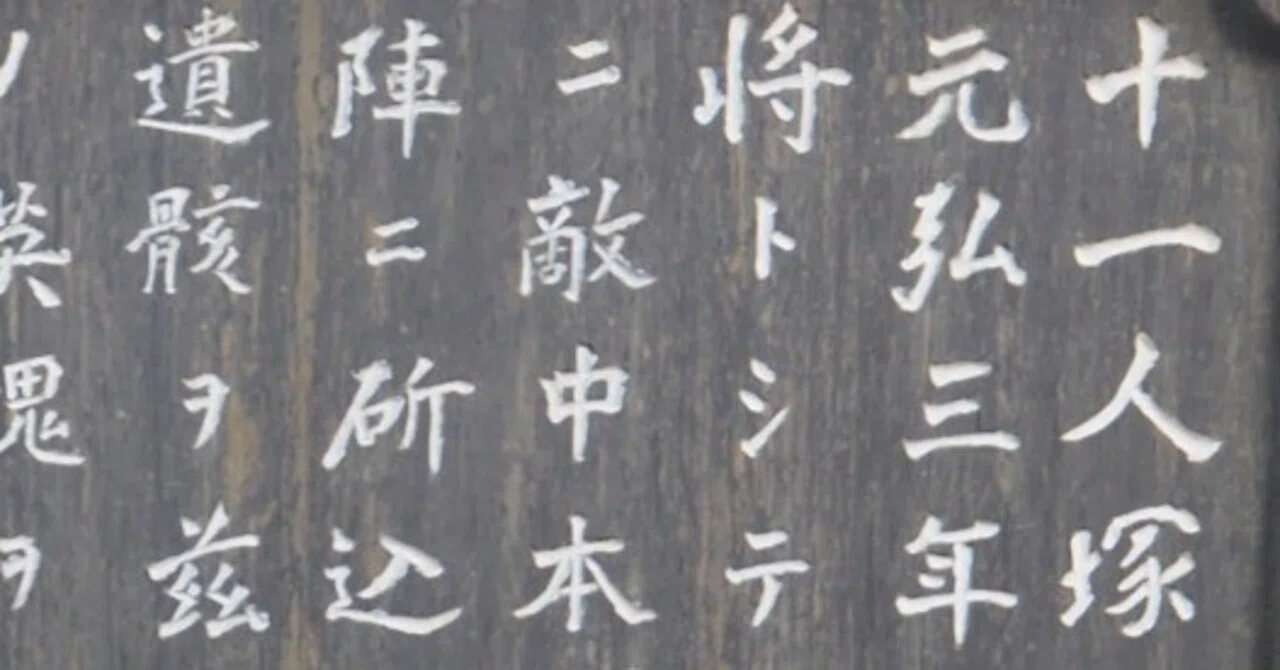 十一人塚
元弘三年
将トシテ
ニ敵中本
陣ニ斫込
遺骸ヲ茲
ノ英魂ヲ